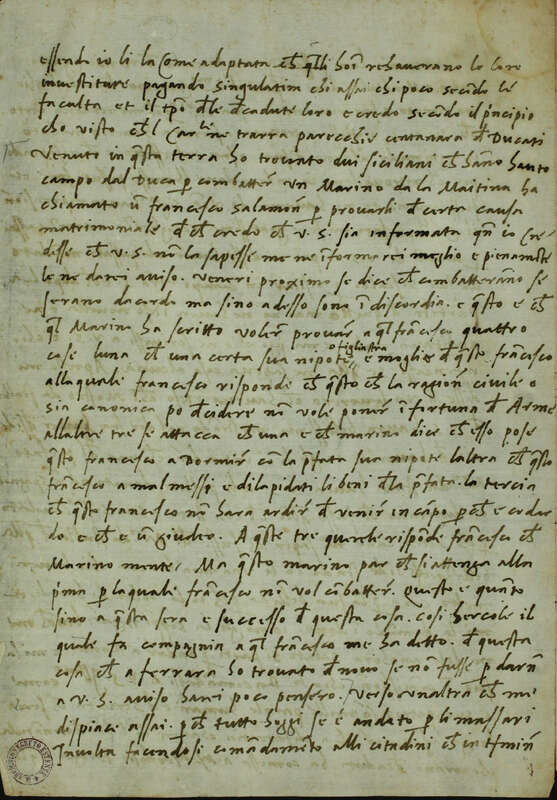 essendo io li la Come adaptata ch̄ q̄lli hoī rehaverano le loro
investiture pagando singulatim chi assai chi poco secōdo le
faculta et il tp̄o d̄le d̄cadute loro e credo secōdo il p̄ncipio
cho visto ch̄l Car.le ne trarra parecchie centanara d̄ Ducati
Venuto in q̄sta terra ho trovato dui siciliani ch̄ hano havuto
campo dal Duca p̄ combatter̄ Un Marino da la Maitina ha
chiamato ū francesco salamon̄ p̄ provarli d̄ certa causa
matrimoniale d̄ ch̄ credo ch̄ v. S. sia informata qn̄ io cre
desse ch̄ v. S. nō la sapesse me ne īformarei meglio e pienamēte
le ne darei aviso. Veneri proximo se dice ch̄ combatterāno se
serano dacordo ma sino adesso sono ī discordia. e q̄sto e ch̄
q̄l Marino ha scritto voler̄ provar̄ a q̄l francesco quattro
cose luna ch̄ una certa sua nipote o figliastra e moglie d̄ q̄sto francesco
alla quale francesco risponde ch̄ q̄sto ch̄ la ragion̄ civile o
sia canonica po d̄cidere nō vole poner̄ ī fortuna d̄ Arme
allaltre tre se attacca ch̄ una e ch̄ marino dice ch̄ esso pose
q̄sto francesco a Dormir̄ cō la p̄fata sua nipote laltra ch̄ q̄sto
frāncesco a mal messi e dilapidati li beni d̄la p̄fata. la tercia
ch̄ q̄sto francesco nō hara ardir̄ d̄ venir̄ in cāpo p̄ ch̄ e codar
do e ch̄ e ū giudeo. A q̄ste tre querele rispōde frāncesco ch̄
Marino mente. Ma q̄sto marino par ch̄ si attenga alla
p̄ma p̄ laquale frāncesco nō vol cōbatter̄. Questo e quāto
sino a q̄sta sera e successo d̄ questa cosa. cosi hercole il
quale fa compagnia a q̄l francesco me ha detto. d̄ questa
cosa ch̄ a ferrara ho trovato d̄ novo se nō fusse p̄ darn̄
a v. S. aviso harei poco pensero. Verso unaltra ch̄ me
dispiace assai. p̄ ch̄ tutto hoggi se è andato p̄ li massari
In volta facendosi comādamēto alli citadini ch̄ in t̄rmin̄